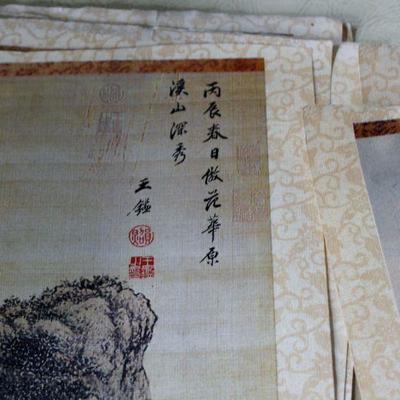 丙辰春日倣范華原
溪山深秀
王鑑